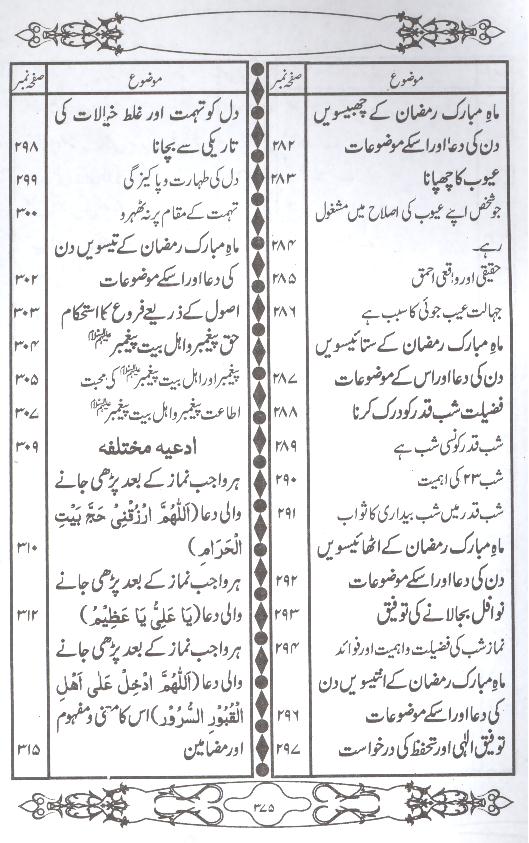 موضوع صفحہ نمبر
ماہِ مبارک رمضان کے چھبیسویں
دن کی دعا اور اسکے موضوعات ۲۸۲
عیوب کا چھپانا ۲۸۳
جو شخص اپنے عیوب کی اصلاح میں مشغول
رہے ۲۸۴
حقیقی اور واقعی احمق ۲۸۵
جہالت عیب جوئی کا سبب ہے ۲۸۶
ماہِ مبارک رمضان کے ستائیسویں
دن کی دعا اور اس کے موضوعات ۲۸۷
فضیلت شب قدر کو درک کرنا ۲۸۸
شب قدر کونسی شب ہے ۲۸۹
شب ۲۳ کی اہمیت ۲۹۰
شب قدر میں شب بیداری کا ثواب ۲۹۱
ماہِ مبارک رمضان کے اٹھائیسویں
دن کی دعا اور اسکے موضوعات ۲۹۲
نوافل بجالانے کی توفیق ۲۹۳
نماز شب کی فضیلت و اہمیت اور فوائد ۲۹۴
ماہِ مبارک رمضان کے انتیسویں دن
کی دعا اور اسکے موضوعات ۲۹۶
توفیق الٰہی اور تحفظ کی درخواست ۲۹۷
موضوع صفحہ نمبر
دل کو تہمت اور غلط خیالات کی
تاریکی سے بچانا ۲۹۸
دل کی طہارت و پاکیزگی ۲۹۹
تہمت کے مقام پر نہ ٹھہرو ۳۰۰
ماہِ مبارک رمضان کے تیسویں دن
کی دعا اور اسکے موضوعات ۳۰۲
اصول کے ذریعے فروع کا استحکام ۳۰۳
حق پیغمبر و اہل بیت پیغمبر ۳۰۴
پیغمبر اور اہل بیت پیغمبر کی محبت ۳۰۵
اطاعت پیغمبر و اہل بیت پیغمبر ۳۰۷
ادعیہ مختلفہ ۳۰۹
ہر واجب نماز کے بعد پڑھی جانے
والی دعا (اَللّٰهُمَّ ارْزُقْنِیْ حَجَّ بَیْتِكَ
الْحَرَامِ) ۳۱۰
ہر واجب نماز کے بعد پڑھی جانے
والی دعا (یَا عَلِیُّ یَا عَظِیْمُ) ۳۱۲
ہر واجب نماز کے بعد پڑھی جانے
والی دعا (اَللّٰهُمَّ اَدْخِلْ عَلٰی اَهْلِ
الْقُبُوْرِ السُّرُوْرَ) اس کا معنی و مفہوم
اور مضامین ۳۱۵
۳۷۵